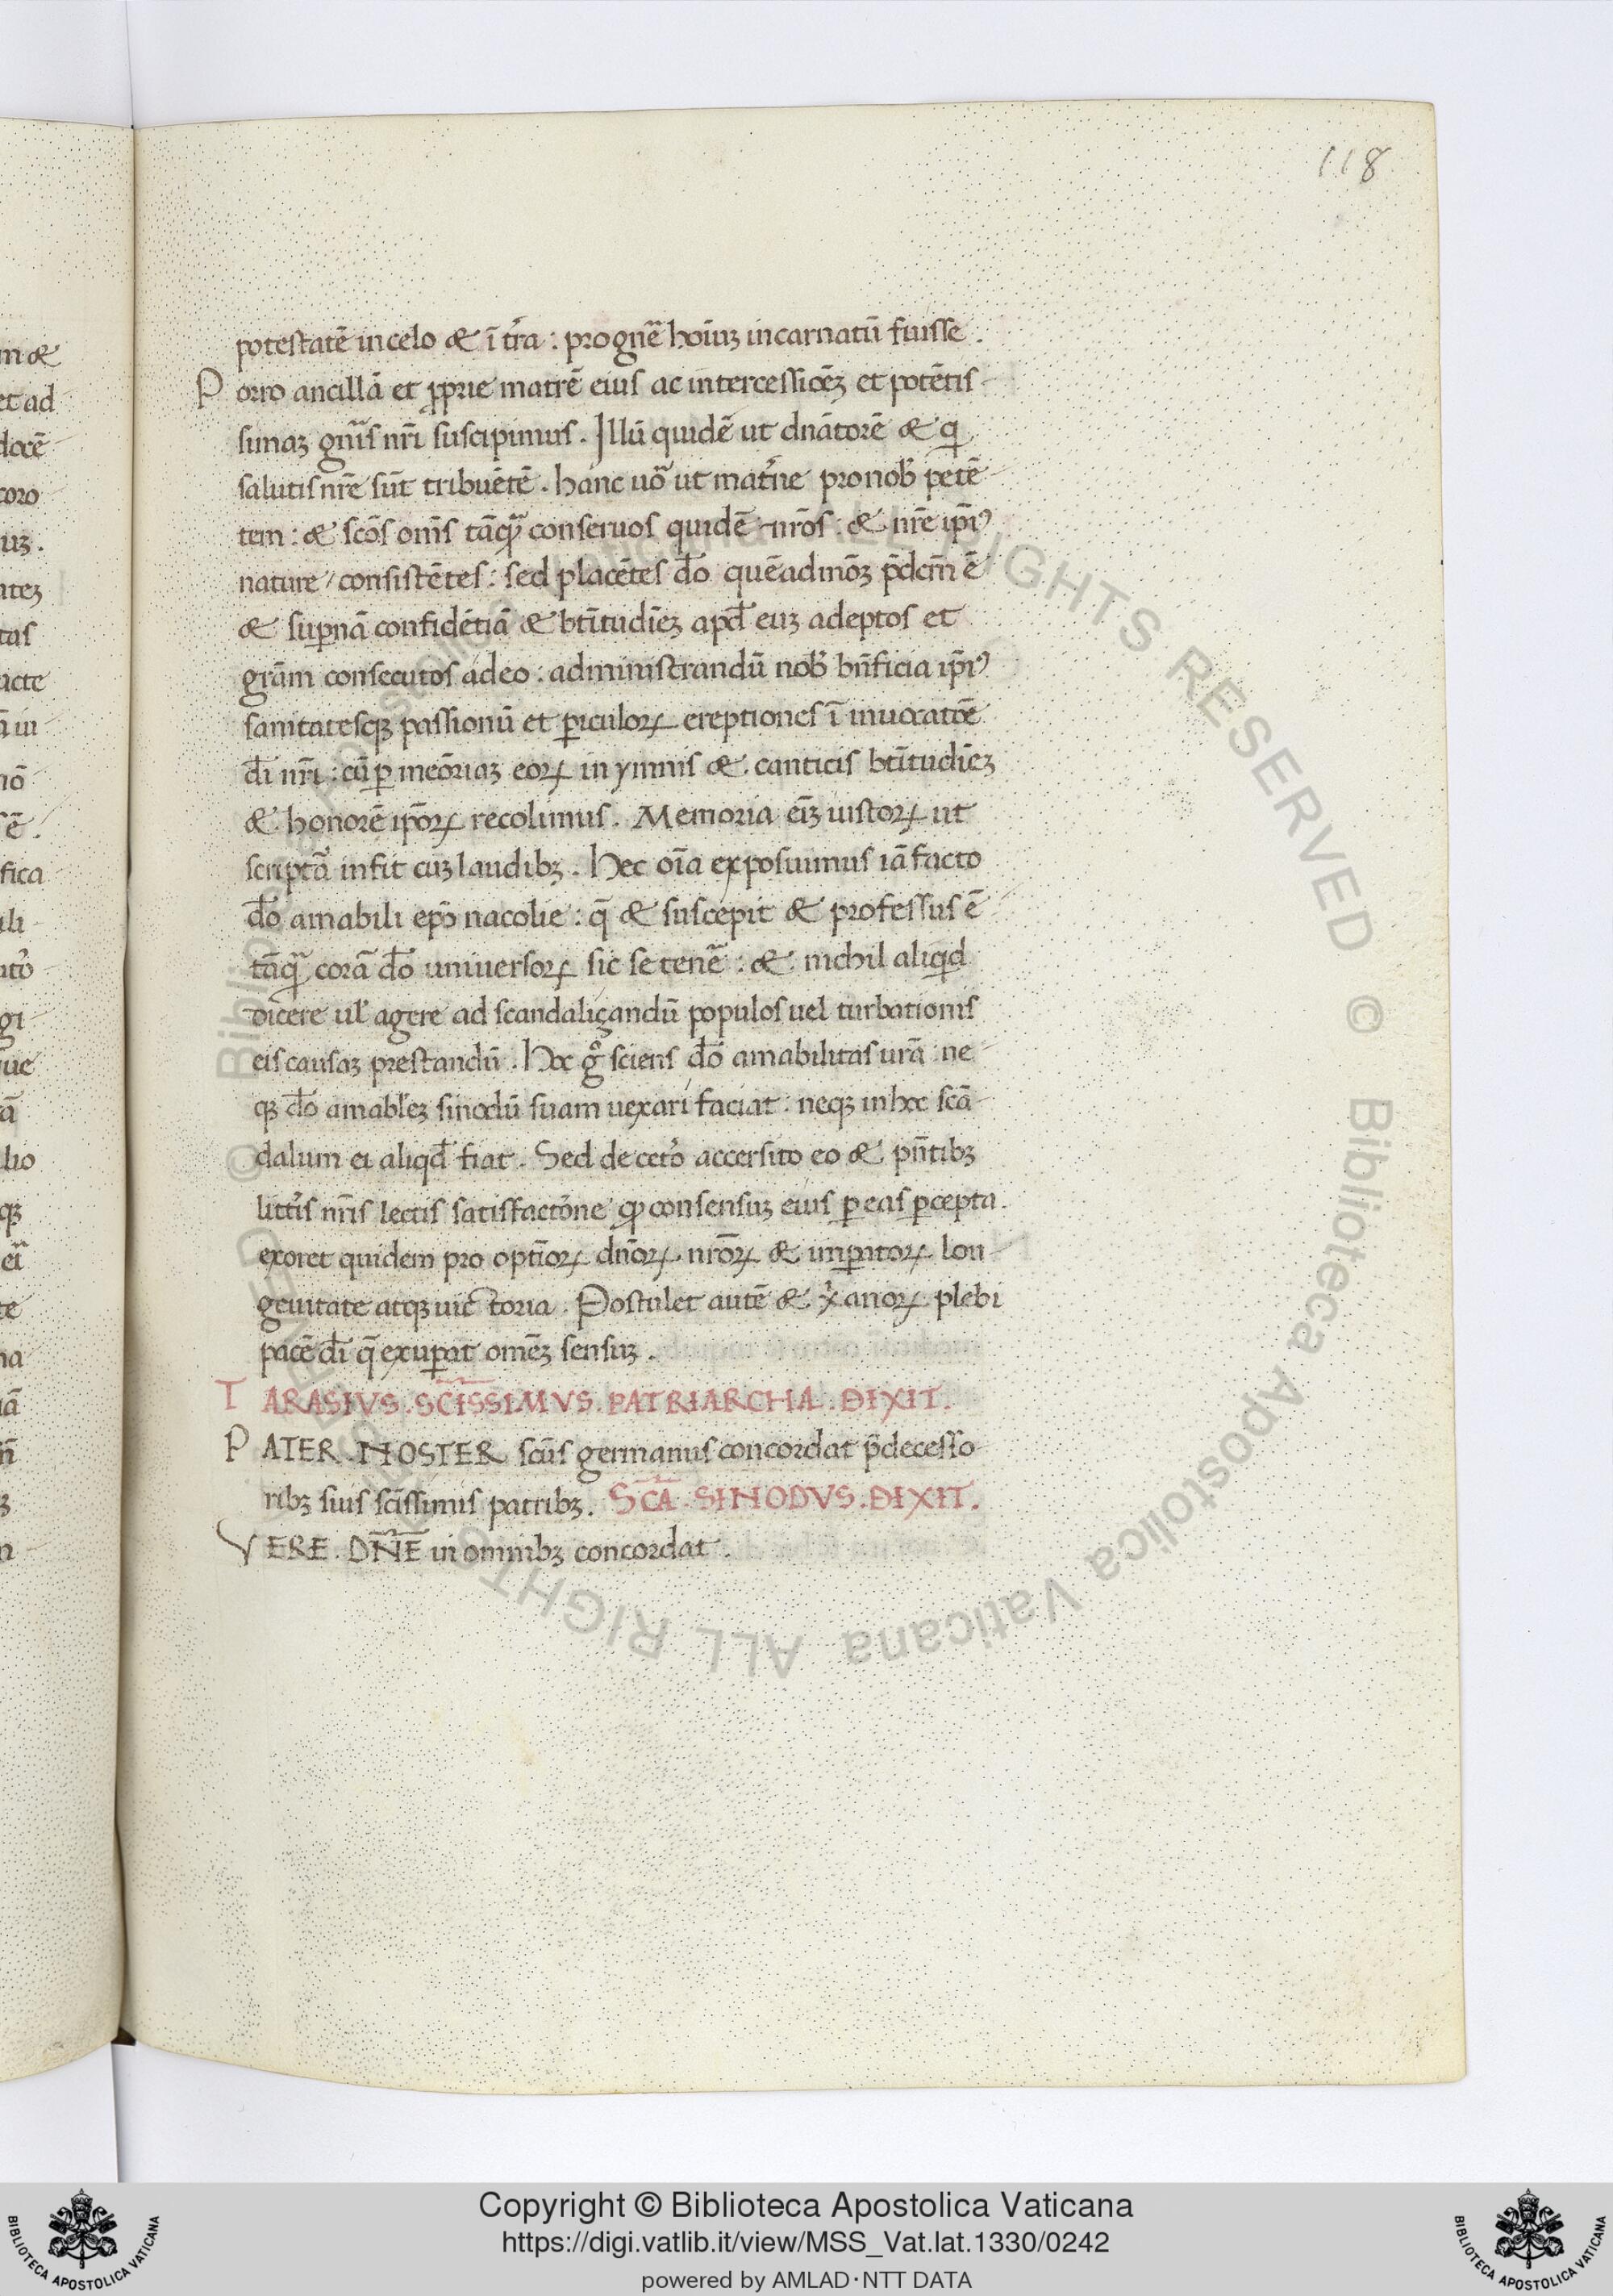 118
potestatē in celo & ī t̄ra : pro gn̄e hoīuꝫ incarnatū fuisse .
Porro ancillā et ꝓprie matrē eius ac intercessiōeꝫ et potētis-
simaꝫ gn̄is nr̄i suscipimus . Illū quidē ut dn̄atorē & q̄
salutis nr̄e sūt tribuētē . hanc uō ut mat̄ne pro nob̄ petē-
tem : & sc̄os om̄s tāq̄ conseruos quidē nr̄os : & nr̄e ip̄iꝰ
nature / consistētes : sed placētes d̄o quēadmōꝫ p̄dcm̄ ē
& suꝑnā confidētiā & bt̄itudīeꝫ apd̄ euꝫ adeptos et
grām consecutos a deo : administrandū nob̄ bn̄ficia ip̄iꝰ
sanitatesqꝫ passionū et ꝑiculoꝝ ereptiones ī inuocatōe
d̄i nr̄i : cū ꝑ meōriaꝫ eoꝝ in ymnis & canticis bt̄itudīeꝫ
& honorē ip̄oꝝ recolimus . Memoria eīꝫ iustoꝝ ut
scriptā̄ infit cuꝫ laudibꝫ . Hec oīa exposuimus iā facto
d̄o amabili ep̄o nacolie : q̄ & suscepit & professus ē
tāq̄ corā d̄o uniuersoꝝ sic se tenē : & nichil aliqid
dicere ul̓ agere ad scandaliçandū populos uel turbationis
eis causaꝫ prestandū . Hoc gͦ sciens d̄o amabilitas urā ne-
qꝫ d̄o amabl̓eꝫ sinodū suam uexari faciat : neqꝫ in hoc scā-
dalum ei aliqd̄ fiat . Sed de cet̓o accersito eo & pn̄tibꝫ
litt̓is nr̄is lectis satisfactōne ꝙ consensuꝫ eius ꝑ eas ꝑcepta .
exoret quidem pro optīoꝝ dn̄oꝝ nr̄oꝝ & imꝑatoꝝ lon-
geuitate atqꝫ uictoria . Postulet autē & x̓anoꝝ plebi
pacē d̄i q̄ exuꝑat omēꝫ sensuꝫ .
TARASIVS . SC̄ISSIMVS . PATRIARCHA . DIXIT .
PATER NOSTER sc̄us germanus concordat p̄decesso-
ribꝫ suis sc̄issimis patribꝫ . SC̄A . SINODVS . DIXIT .
VERE . DN̄E in omnibꝫ concordat .
m &
et ad
docē-
coro
uꝫ .
nteꝫ
tas
acte
ā in
nō
ē .
fica
ili-
gi
que
tā
lio
qꝫ
te
na
iā
n̄
ꝫ
n
© Biblioteca Apostolica Vaticana ALL RIGHTS RESERVED © Biblioteca Apostolica Vaticana ALL RIGHTS RESERVED
Copyright © Biblioteca Apostolica Vaticana
https://digi.vatlib.it/view/MSS_Vat.lat.1330/0242
powered by AMLAD·NTT DATA
BIBLIOTECA APOSTOLICA VATICANA
BIBLIOTECA APOSTOLICA VATICANA